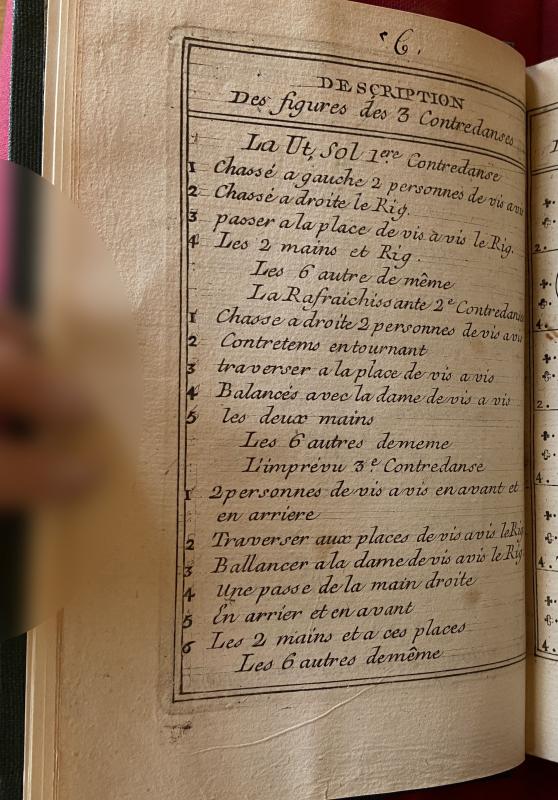 6.
DESCRIPTION
Des figures des 3 Contredanses
La Ut, Sol 1ere Contredanse
1 Chassé a gauche 2 personnes de vis a vis
2 Chassé a droite le Rig.
3 passer a la place de vis à vis le Rig.
4 Les 2 mains et Rig.
Les 6 autre de même
La Rafraichissante 2e Contredanse
1 Chasse a droite 2 personnes de vis a vis
2 Contretems en tournant
3 traverser a la place de vis a vis
4 Balancés avec la dame de vis a vis
5 les deux mains
Les 6 autres de meme
L'imprévu 3e. Contredanse
1 2 personnes de vis a vis en avant et
en arriere
2 Traverser aux places de vis a vis le Rig
3 Ballancer a la dame de vis a vis le Rig
4 Une passe de la main droite
5 En arrier et en avant
6 Les 2 mains et a ces places
Les 6 autres de même
2.
4.
2.
4.
4.